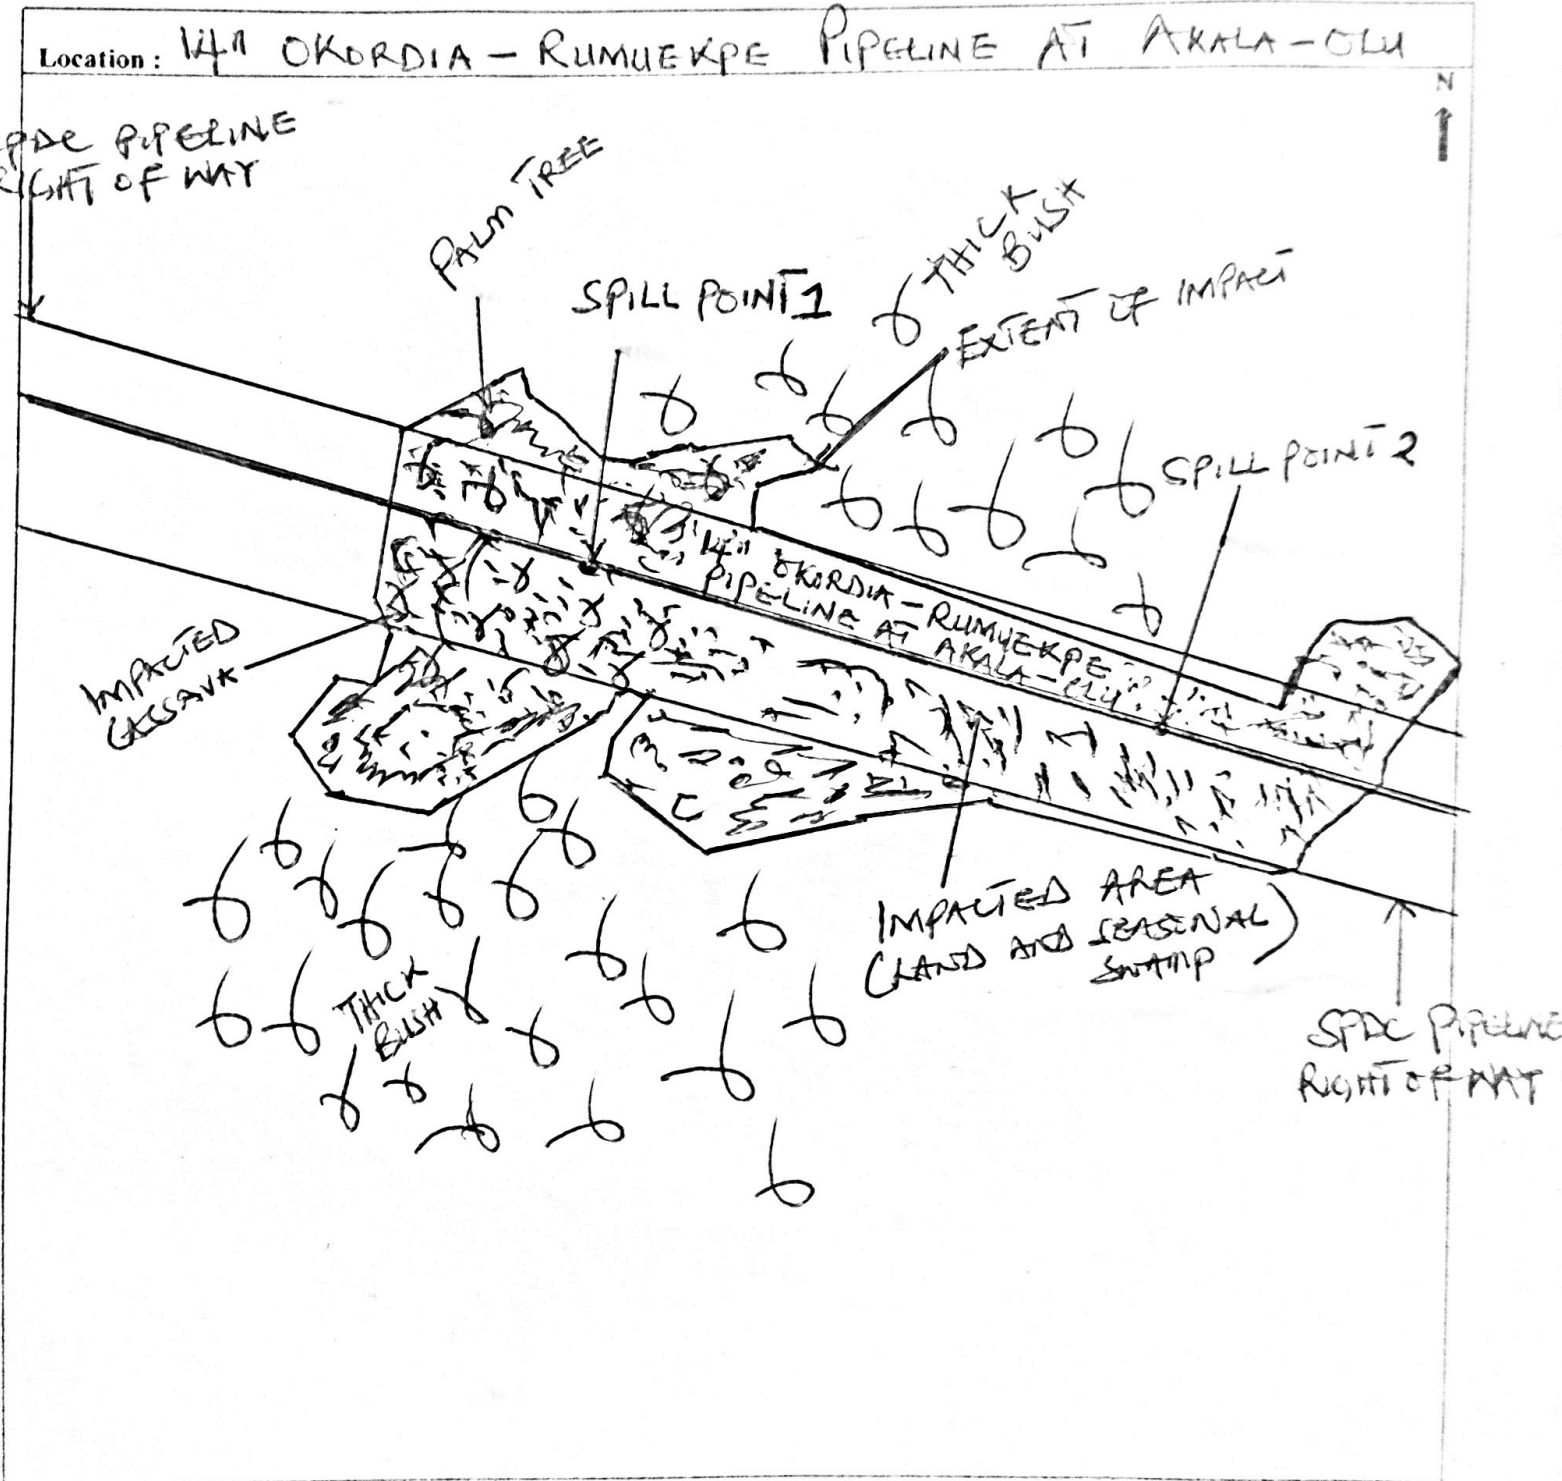 Location : 14" OKORDIA - RUMUEKPE PIPELINE AT AKALA-OLU
N
SPDC PIPELINE
RIGHT OF WAY
PALM TREE
SPILL POINT 1
THICK
BUSH
EXTENT OF IMPACT
SPILL POINT 2
14" OKORDIA - RUMUEKPE
PIPELINE AT AKALA-OLU
IMPACTED
CASSAVA
IMPACTED AREA
(LAND AND SEASONAL)
SWAMP
THICK
BUSH
SPDC PIPELINE
RIGHT OF WAY